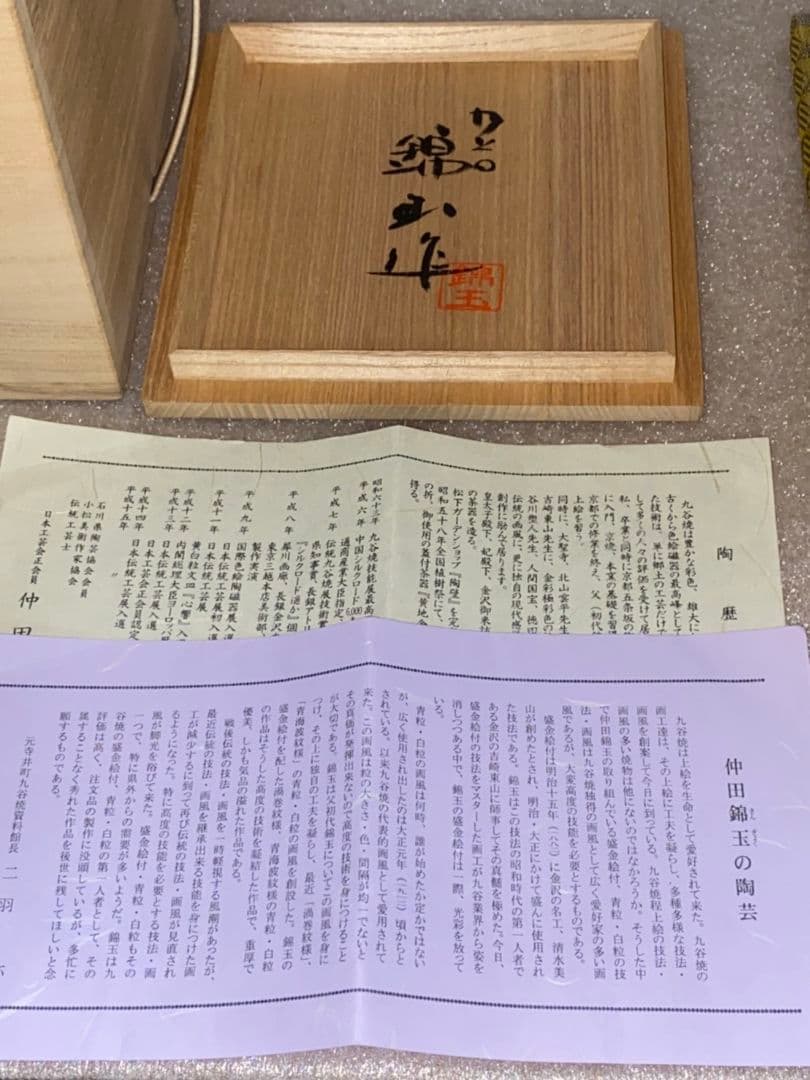 九谷
錦玉作
錦玉
陶歴
九谷焼は豊かな彩色、雄大に
古くから色絵磁器の最高峰として
た技術は、単に郷土の工芸だけで
して多くの人々の評価を受けて居
私、卒業と同時に京都五条坂の
に入門、京焼、本窯の基礎を習得
京都での修業を終る、父（初代
上絵を習う。
同時に、大聖寺、北山雲平先生
吉崎東山先生に、金彩極彩色の
谷川塑人先生、人間国宝、徳田
伝統の画風に、更に独自の現代感
創作に励んで居ります。
皇太子殿下、妃殿下、金沢御来
の茶器を造る。
松下ガーデンショップ『陶壁』を完
昭和五十八年全国植樹祭にて、
の折、御使用の蓋付茶器『黄地金
得る。
昭和六十三年 九谷焼技能展最高
平成六年 中国シルクロード6,000
通商産業大臣指定、
平成七年 伝統九谷焼展技術賞
県知事賞、長銀アトリ
平成八年 『シルクロード遥か』個
犀川画廊、長銀金沢
東京三越本店美術部
製作実演
平成九年 国際色絵陶磁器展入選
日本伝統工芸展初入選
平成十一年 日本伝統工芸展
黄白粒文皿『心響』入
平成十二年 内閣総理大臣ヨーロッパ
平成十三年 日本伝統工芸展入選
平成十四年 日本工芸会正会員認定
平成十五年 日本伝統工芸展入選
〃
石川県陶芸協会会員
小松美術作家協会
伝統工芸士
日本工芸会正会員
仲田
仲田錦玉の陶芸
九谷焼は上絵を生命として愛好されて来た。九谷焼の
画工達は、その上絵に工夫を凝らし、多種多様な技法・
画風を創案して今日に到っている。九谷焼程上絵の技法・
画風の多い焼物は他にないのではなかろうか。そうした中
で仲田錦玉の取り組んでいる盛金絵付、青粒・白粒の技
法・画風は九谷焼独得の画風として広く愛好家の多い画
風であるが、大変高度の技能を必要とするものである。
盛金絵付は明治十五年（一八八二）に金沢の名工、清水美
山が創めたとされ、明治・大正にかけて盛んに使用され
た技法である。錦玉はこの技法の昭和時代の第一人者で
ある金沢の吉崎東山に師事してその真髄を極めた。今日、
盛金絵付の技法をマスターした画工が九谷業界から姿を
消しつつある中で、錦玉の盛金絵付は一際、光彩を放って
いる。
青粒・白粒の画風は何時、誰が始めたか定かではない
が、広く使用され出したのは大正元年（一九一二）頃からと
されている。以来九谷焼の代表的画風として愛用されて
来た。この画風は粒の大きさ・色・間隔が均一でないと
その真価が発揮出来ないので高度の技術を身につけること
が大切である。錦玉は父初代錦玉についてこの画風を身に
つけ、その上に独自の工夫を凝らし、最近「渦巻紋様」、
「青海波紋様」の青粒・白粒の画風を創設した。錦玉の
盛金絵付を配した渦巻紋様、青海波紋様の青粒・白粒
の作品はそうした高度の技術を凝結した作品で、重厚で
優美、しかも気品の溢れた作品である。
戦後伝統の技法・画風を一時軽視する風潮があったが、
最近伝統の技法・画風を継承出来る技能を身につけた画
工が減少するに到って再び伝統の技法・画風が見直され
るようになった。特に高度の技能を必要とする技法・画
風が脚光を俗びて来た。盛金絵付・青粒・白粒もその
一つで、特に県外からの需要が多いようだ。錦玉は九
谷焼の盛金絵付、青粒・白粒の第一人者として、その
評価は高く、注文品の製作に没頭しているが、多忙に
属することなく秀れた作品を後世に残してほしいと念
願するものである。
元寺井町九谷焼資料館長 二羽